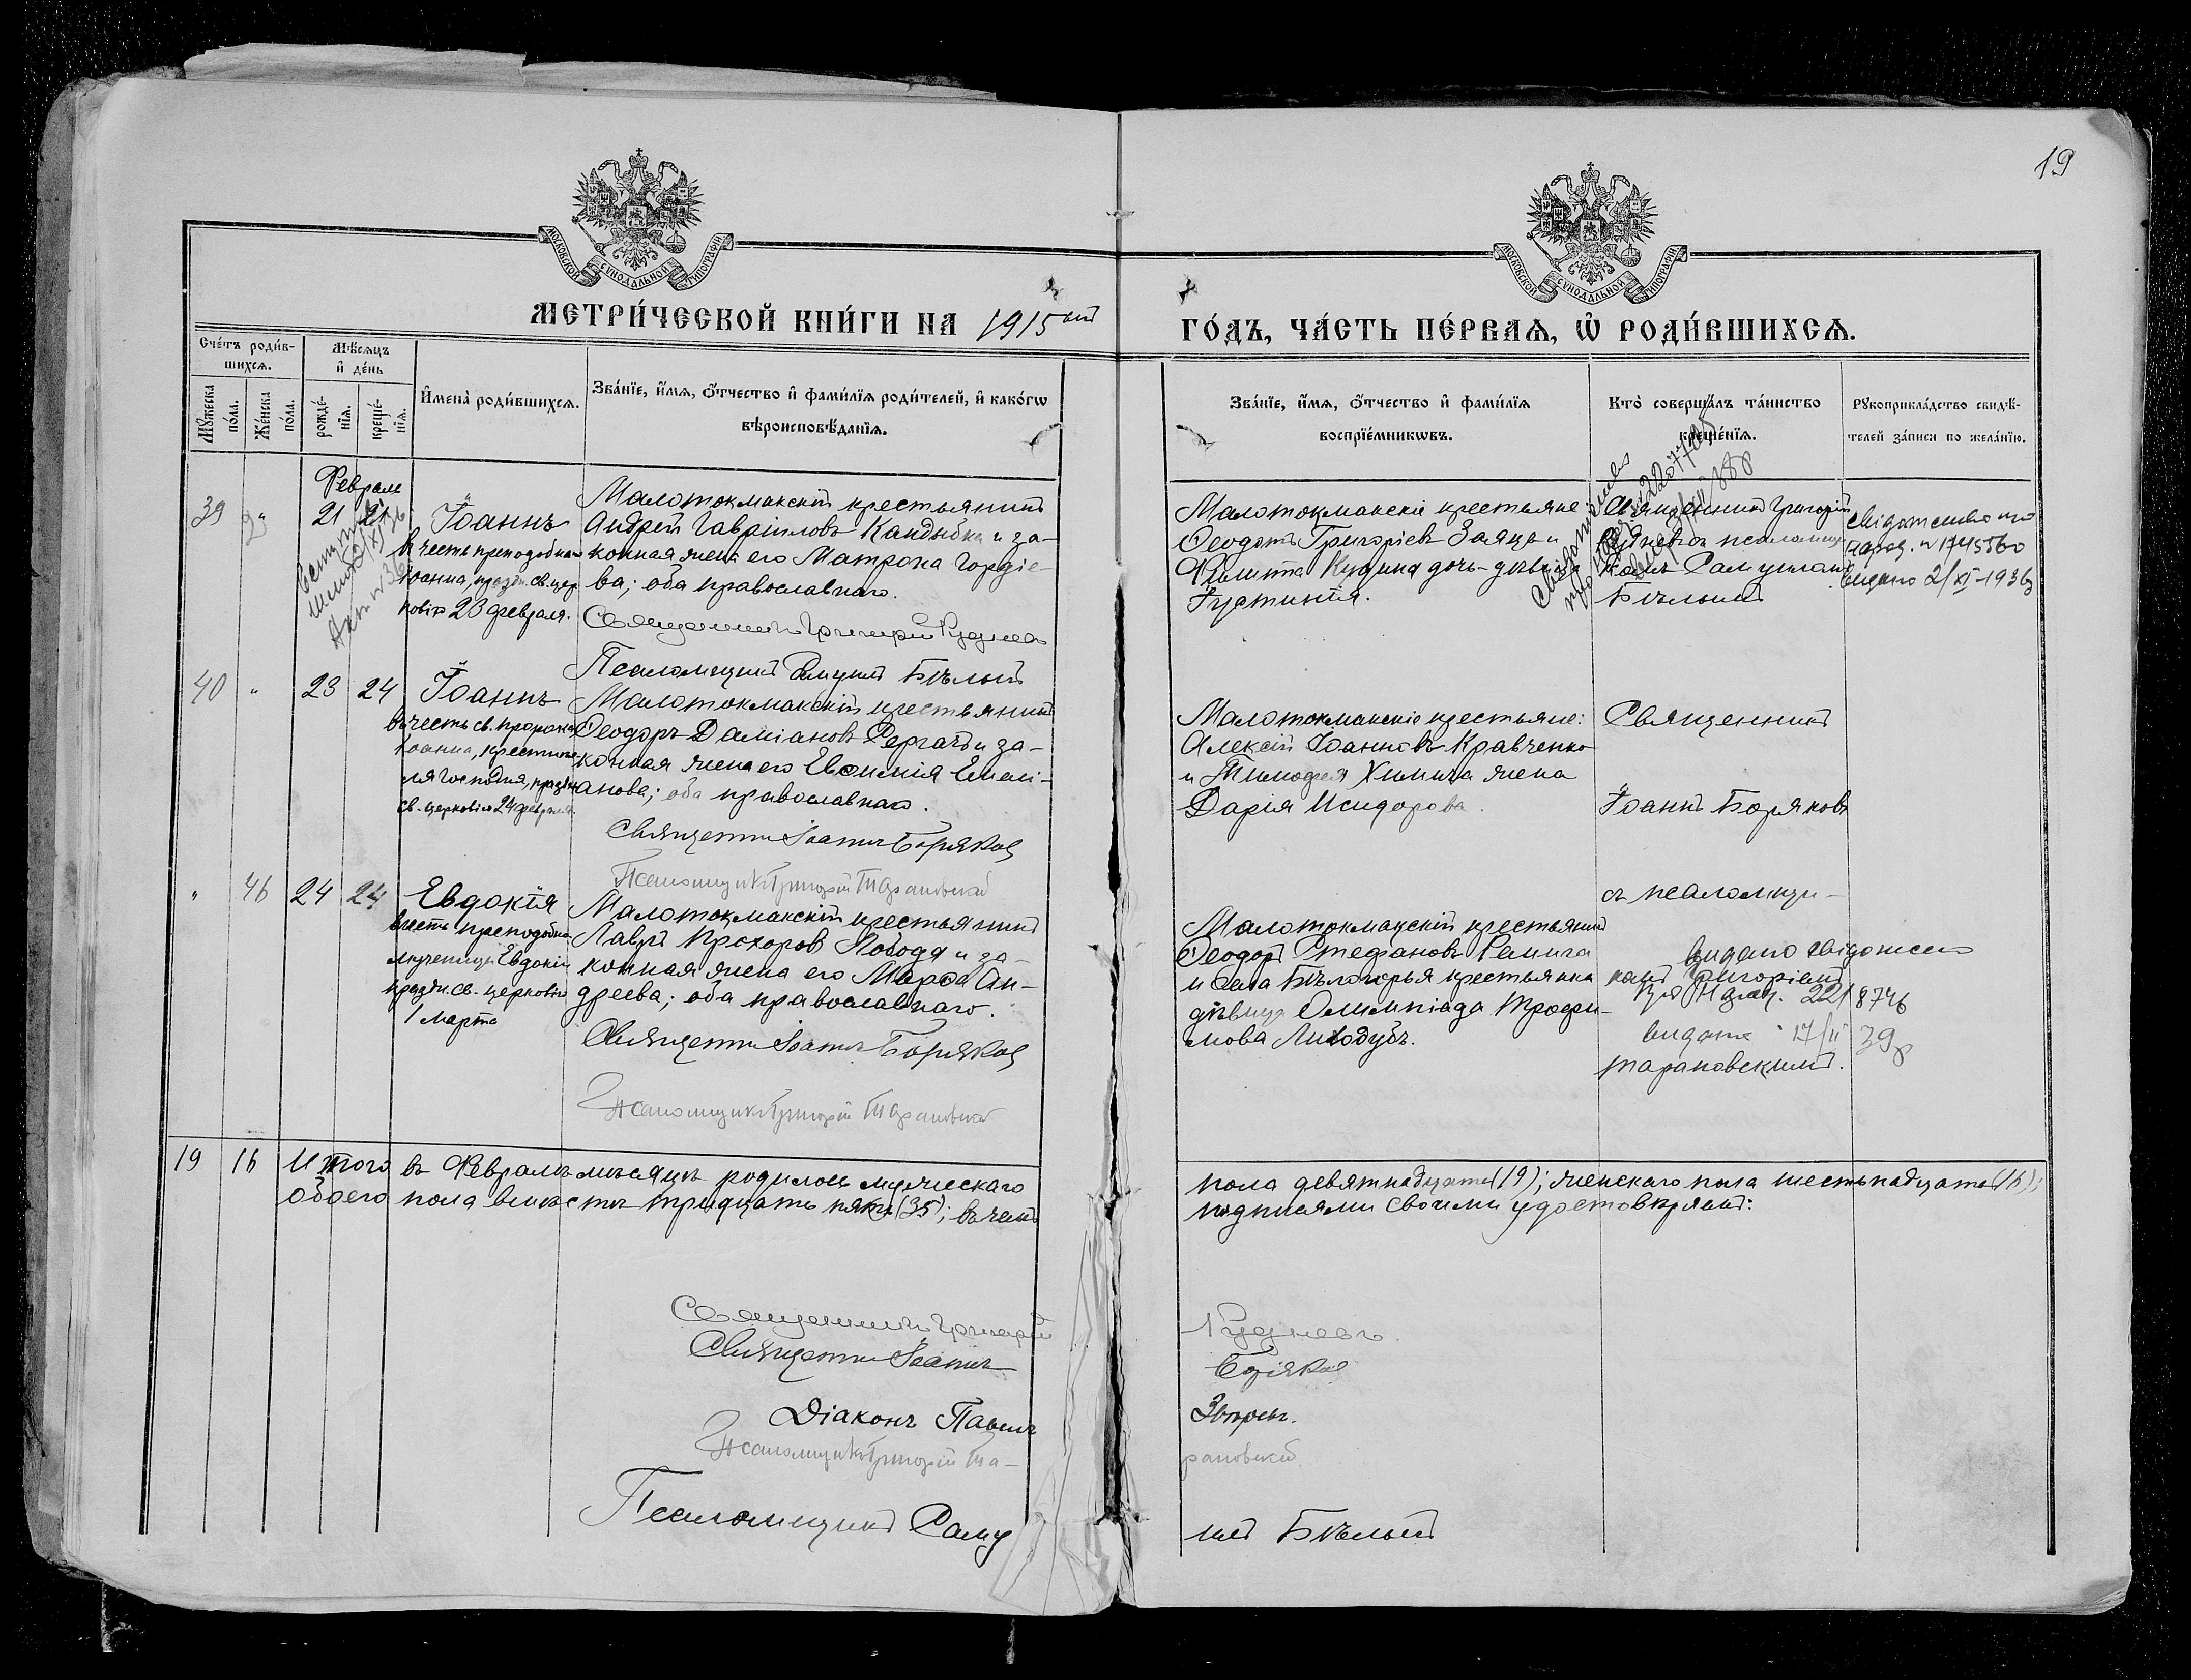 19
МОСКОВСКОЙ СѴНОДАЛЬНОЙ ТИПОГРАФІИ
МОСКОВСКОЙ СѴНОДАЛЬНОЙ ТИПОГРАФІИ
МЕТРИ́ЧЕСКОЙ КНИ́ГИ НА 1915ый
ГО́ДЪ, ЧА́СТЬ ПЕ́РВАЯ, Ѡ҆ РОДИ́ВШИХСЯ.
Сче́тъ роди́в-
шихся.
Мꙋ́жеска по́ла.
Же́нска по́ла.
Мѣ́сяцъ
и҆ де́нь
рожде́-
нїя.
креще́-
нїя.
И҆мена̀ роди́вшихся.
Зва́нїе, и҆́мя, ѻ҆́тчество и҆ фами́лїя роди́телей, и҆ како́гѡ
вѣроисповѣ́данїя.
Зва́нїе, и҆́мя, ѻ҆́тчество и҆ фами́лїя
воспрїе́мникѡвъ.
Кто̀ соверша́лъ та́инство
креще́нїя.
Рꙋкоприкла́дство свидѣ́-
телей за́писи по жела́нїю.
Февраль
39 " 21 21
Іоаннъ
в честь преподобнаго
Іоанна, празд. св. цер
ковію 23 февраля.
Малотокмакскій крестьянинъ
Андрей Гавріиловъ Кандыбка и за-
конная жена его Матрона Гордіе-
ва; оба православнаго.
Священникъ Григорій Рудневъ
Псаломщикъ Самуилъ Бѣлый
Малотокмакскіе крестьяне:
Ѳеодотъ Григоріевъ Заяцъ и
дочь-дѣвица
Іустинія.
Священникъ Григорій
Рудневъ съ псаломщи
комъ Самуиломъ
Бѣлымъ
свідотство про
народ. № 1745560
видано 2/XI-1936
40 " 23 24
Іоаннъ
въ честь св. пророка
Іоанна, крестите
ля Господня, празdн
св. церковію 24 февраля.
Малотокмакскій крестьянинъ
Ѳеодоръ Даміановъ Сергачъ и за-
конная жена его Евѳимія Емелі-
анова; оба православнаго.
Священникъ Іоаннъ Боряковъ
Псаломщикъ Григорій Тарановскій
Малотокмакскіе крестьяне:
Алексій Іоанновъ Кравченко
и Тимофея Химича жена
Дарія Исидорова.
Священникъ
Іоаннъ Боряковъ
съ псаломщи-
комъ Григоріемъ
Тарановскимъ.
" 16 24 24
Евдокія
в честь преподобно
мученицы Евдокіи
праздн. св. церковію
1 марта
Малотокмакскій крестьянинъ
Лавръ Прохоровъ Лобода и за-
конная жена его Марѳа Ан-
дреева; оба православнаго.
Священникъ Іоаннъ Боряковъ
Псаломщикъ Григорій Тарановскій
Малотокмакскій крестьянинъ
Ѳеодоръ Стефановъ Галича
и села Бѣлогорья крестьянка
дѣвица Олимпіада Трофи-
мова Лиходубъ.
видано свідотство
про Народ. 2218746
видано 17/II 39р
19 16 Итого въ Февралѣ мѣсяцѣ родилось мужескаго
пола девятнадцать (19); женскаго пола шестьнадцать (16);
обоего пола вмѣстѣ тридцать пять (35); въ чемъ
подписями своими удостовѣряемъ:
Священникъ Григорій Рудневъ
Священникъ Іоаннъ Боряковъ
Діаконъ Павелъ Звѣревъ.
Псаломщикъ Григорій Та-рановскій
Псаломщикъ Самуилъ Бѣлый